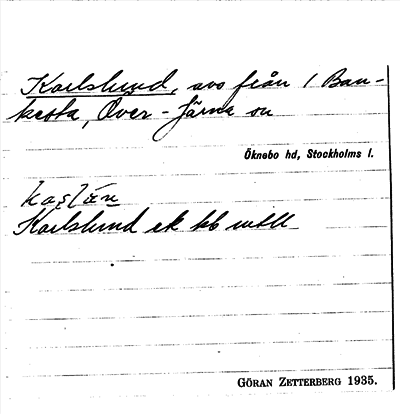 Karlslund, avs från 1 Ban-
kesta, Över-Järna sn
Öknebo hd, Stockholms l.
Karlslund ek kb
GÖRAN ZETTERBERG 1935.